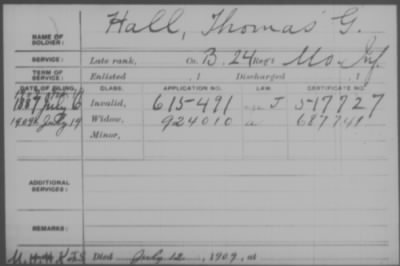 NAME OF SOLDIER: Hall, Thomas G.
SERVICE: Late rank, Co. B, 24 Reg't Mo Inf
TERM OF SERVICE: Enlisted , 1 Discharged , 1
DATE OF FILING. CLASS. APPLICATION NO. LAW. CERTIFICATE NO.
1887 July 6 Invalid, 615-491 J 517727
1909 July 19 Widow, 924010 a 687741
Minor,
ADDITIONAL SERVICES:
REMARKS:
Died July 12, 1909, at